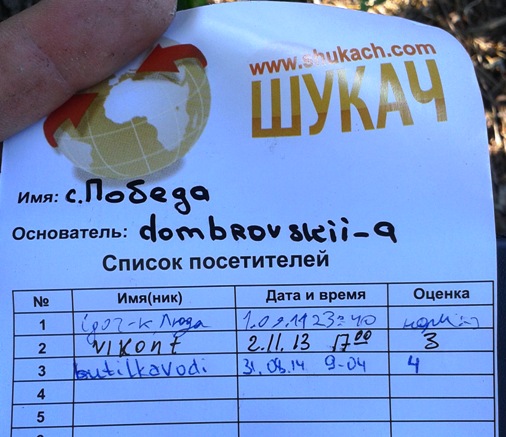 www.shukach.com
ШУКАЧ
Имя: с.Победа
Основатель: dombrovskii-a
Список посетителей
№ Имя(ник) Дата и время Оценка
1
2 VIKONT 2.11.13 17 00 3
3 butilkavodi 31.08.14 9-04 4
4
5